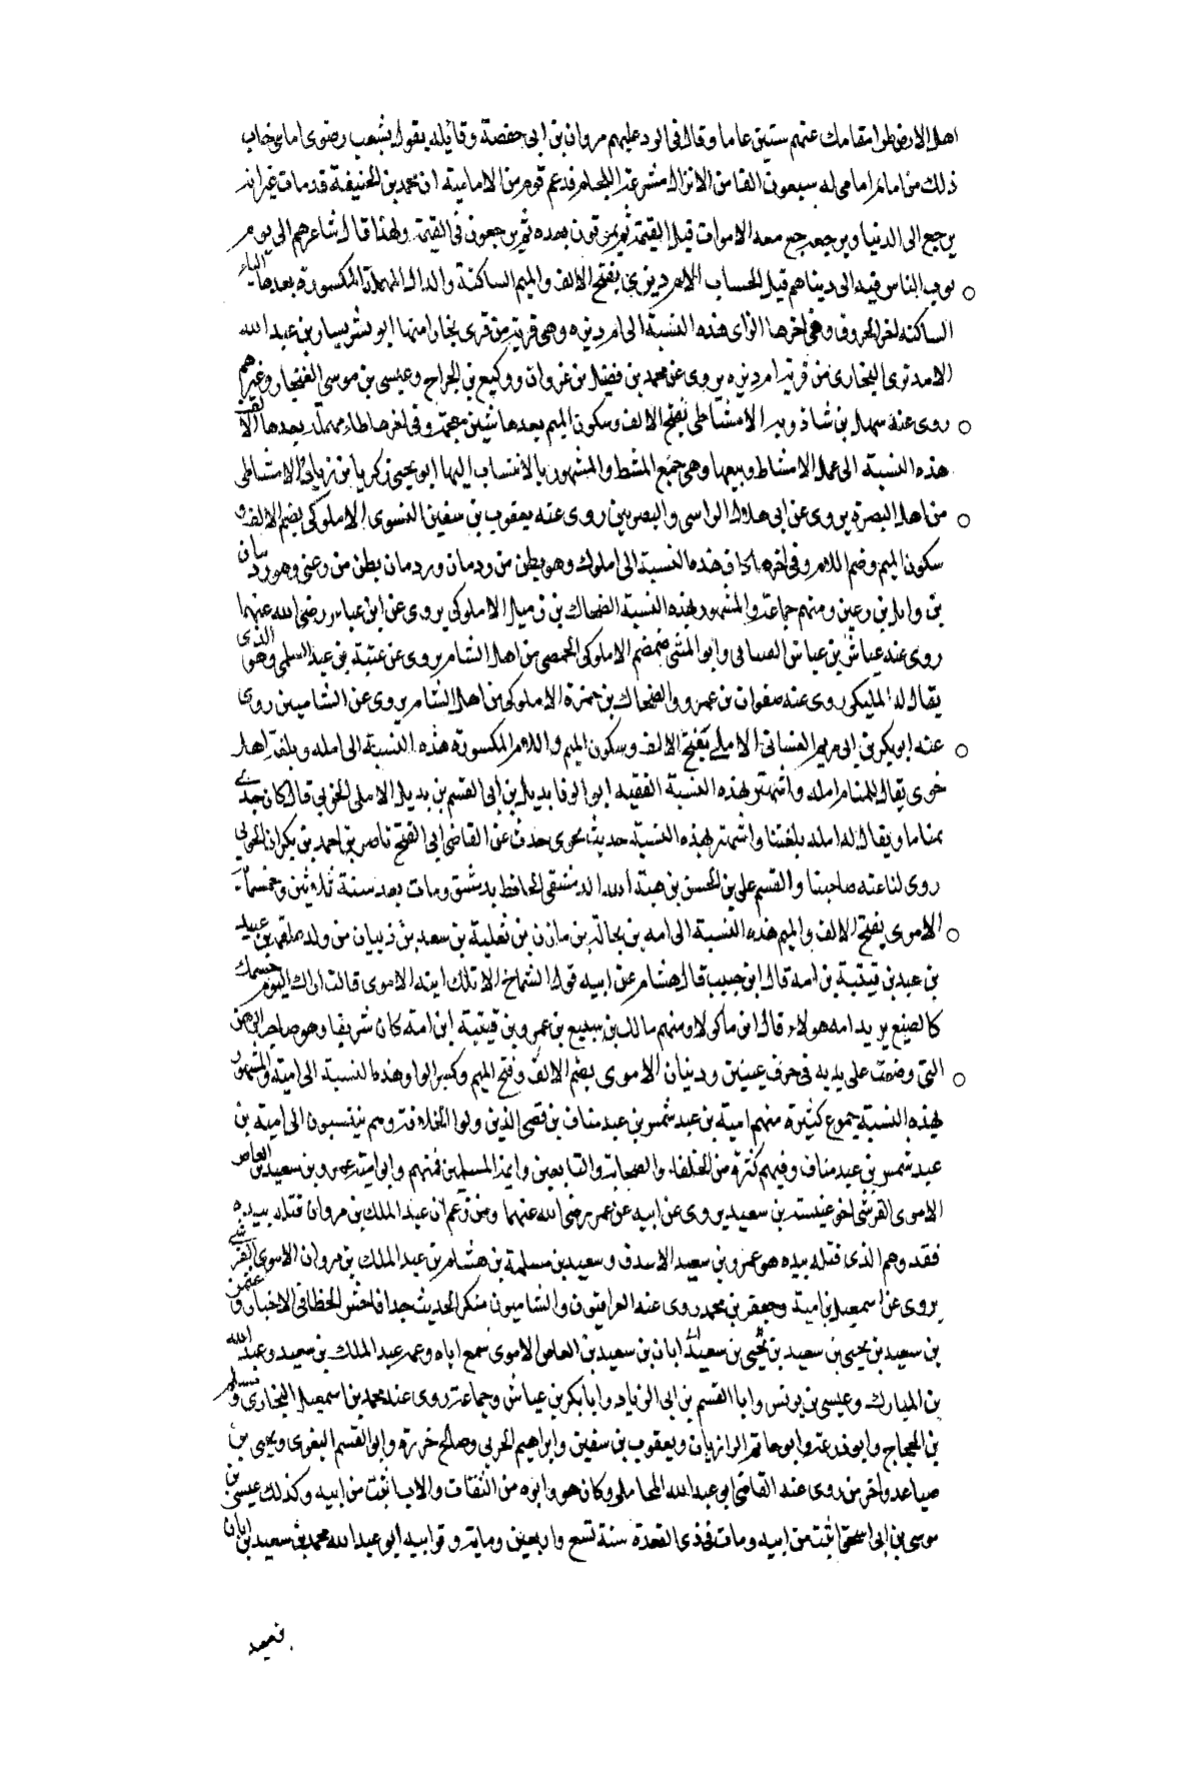 اهل الارض طرا مقامك عنهم ستين عاما وقال فى الرد عليهم مروان بن ابى حفصة وقائله يقول بشعب رضوى امامى خاب
ذلك من امام امامى له سبعون الفا من الاتراك مشرعة اللجام فدعم قوم من الامامية ان محمد بن الحنيفة قد مات غير انه
يرجع الى الدنيا ويرجع معه الاموات قبل القيمة ثم يموتون بعده ثم يرجعون فى القيمة ولهذا قال شاعرهم الى يوم
يوب الناس فيه الى ديناهم قبل الحساب الامديزى بفتح الالف والميم الساكنة والدال المهملة المكسورة بعدها الياء
الساكنه اخر الحروف وفى اخرها الزاى هذه النسبة الى امديزه وهى قرية من قرى بخارا منها ابو بشر يسار بن عبد الله
الامدىزى البخارى من قرية امديزه يروى عن محمد بن فضيل بن غزوان ووكيع بن الجراح وعيسى بن موسى الغنجار وغيرهم
روى عنه سهل بن شاذويه الامشاطى بفتح الالف وسكون الميم بعدها شين معجمة وفى اخرها طاء مهملة بعدها الالف
هذه النسبة الى عمل الامشاط وبيعها وهى جمع المشط والمشهور بالانتساب اليها ابو يحيى زكريا بن زياد الامشاطى
من اهل البصرة يروى عن ابى هلال الراسى والبصريين روى عنه يعقوب بن سفين الفسوى الاملوكى بضم الالف و
سكون الميم وضم اللام وفى اخرها كاف هذه النسبة الى املوك وهو بطن من ردمان وردمان بطن من رعين وهو ردمان
بن وايل بن رعين ومنهم جماعة والمشهور بهذه النسبة الضحاك بن زميل الاملوكى يروى عن ابن عباس رضى الله عنهما
روى عنه عياش بن عباس القتبانى وابو المثنى ضمضم الاملوكى الحمصى من اهل الشام يروى عن عتبة بن عبد السلمى وهو الذى
يقال له المليكى روى عنه صفوان بن عمرو والضحاك بن حمزة الاملوكى من اهل الشام يروى عن الشاميين روى
عنه ابو بكر بن ابى مريم الغسانى الاملى بفتح الالف وسكون الميم واللام المكسورة هذه النسبة الى امله وبلغة اهل
خوى يقال للمنام امله واشتهر بهذه النسبة الفقيه ابو الوفا بديل بن ابى القسم بن بديل الاملى الخوى قال كان جدى
مناما ويقال له امله بلغتنا واشتهر بهذه النسبة حديث بخوى حدث عن القاضى ابى الفتح ناصر بن احمد بن بكران الخوى
روى لنا عنه صاحبنا والقسم على بن الحسن بن هبة الله الدمشقى الحافظ بدمشق ومات بعد سنة ثلاثين وخمسمائة
الاموى بفتح الالف والميم هذه النسبة الى امه بن بجالة بن مازن بن ثعلبة بن سعد بن ذبيان من ولده علقمة بن عبيد
بن عبد بن قيتبة بن امه قال ابن حبيب قال هشام عن ابيه قول الشماخ الا تلك ابنه الاموى قالت اراك اليوم جسمك
كالصنيع يريد امه هولاء قال ابن ماكولا ومنهم مالك بن سبيع بن عمرو بن قيتبة بن امه كان شريفا وهو صاحب الرهن
التى وضعت على يديه فى حرف عبس وذبيان الاموى بضم الالف وفتح الميم وكسر الواو هذه النسبة الى امية والمشهور
بهذه النسبة جموع كثيرة منهم امية بن عبد شمس بن عبد مناف بن قصى الذين ولوا الخلافة وهم ينتسبون الى امية بن
عبد شمس بن عبد مناف وفيهم كثرة من الخلفاء والصحابة والتابعين وايمة المسلمين فمنهم وابو امية عمرو بن سعيد بن العاص
الاموى القرشى اخو عنبسة بن سعيد يروى عن ابيه عن عمر رضى الله عنهما ومن زعم ان عبد الملك بن مروان قتله بيده
فقد وهم الذى قتله بيده هو عمرو بن سعيد الاسدق وسعيد بن مسلمة بن هشام بن عبد الملك بن مروان الاموى القرشى
يروى عن اسمعيل بن امية وجعفر بن محمد روى عنه العراقيون والشاميون منكر الحديث جدا فاحش الخطا فى الاخبار و عثمن
بن سعيد بن يحيى بن سعيد بن يحيى بن سعيد ابان بن سعيد بن العاص الاموى سمع اباه وعمه عبد الملك بن سعيد وعبد الله
بن المبارك وعيسى بن يونس وابا القسم بن ابى الزناد وابا بكر بن عياش وجماعة روى عنه محمد بن اسمعيل البخارى و مسلم
بن الحجاج وابو زرعة وابو حاتم الرازيان ويعقوب بن سفين وابراهيم الحربى وصالح جزرة وابو القسم البغوى ويحيى بن
صاعد واخر من روى عنه القاضى ابو عبد الله المحاملى وكان هو وابوه من الثقات والاب اثبت من ابيه وكذلك عيسى بن
موسى بن ابى اسحق اثبت من ابيه ومات فى ذى القعدة سنة تسع واربعين وماية و قرابيه ابو عبد الله محمد بن سعيد بن ابان